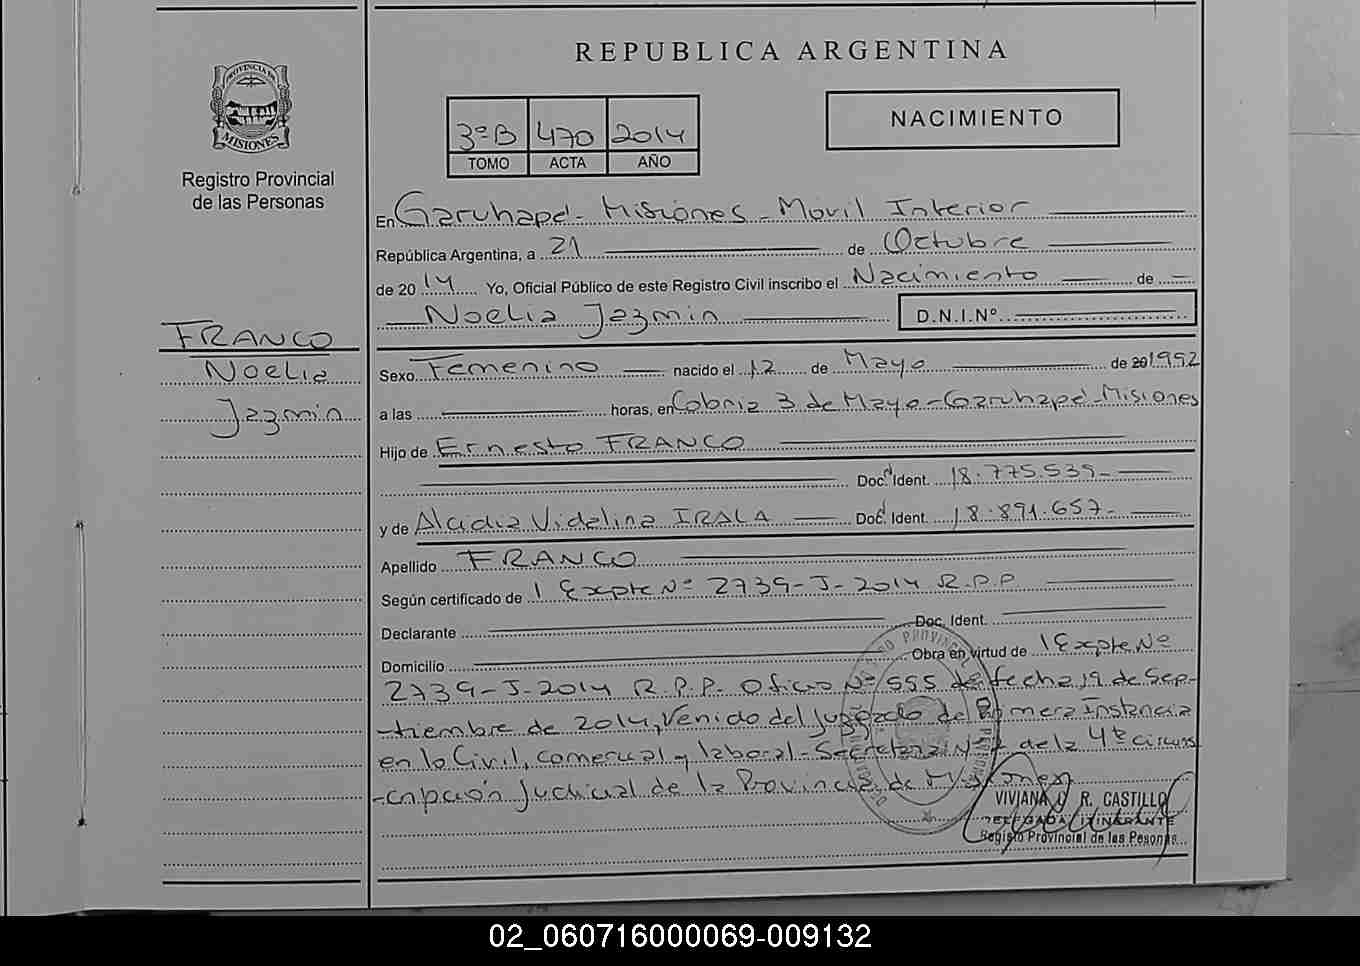 REPUBLICA ARGENTINA
PROVINCIA DE
MISIONES
Registro Provincial
de las Personas
3ºB 470 2014
TOMO ACTA AÑO
NACIMIENTO
En Garuhapé - Misiones - Móvil Interior
República Argentina, a 21 de Octubre
de 2014 Yo, Oficial Público de este Registro Civil inscribo el Nacimiento de
Noelia Jazmin D.N.I.Nº
FRANCO
Noelia
Jazmin
Sexo Femenino nacido el 12 de Mayo de 20 1992
a las horas, en Cobnia 3 de Mayo - Garuhapé - Misiones
Hijo de Ernesto FRANCO
Doc. Ident. 18.775.539-
y de Alcidia Vidalina IRALA Doc. Ident. 18.891.657-
Apellido FRANCO
Según certificado de 1 Expte Nº 2739-J-2014 R.P.P
Declarante Doc. Ident.
Domicilio Obra en virtud de 1 Expte Nº
2739-J-2014 R.P.P. Oficio Nº 555 de fecha 19 de Sep-
tiembre de 2014, Venido del Juzgado de Primera Instancia
en lo Civil, comercial y laboral - Secretaria Nº de la 4ta Circuns
-cripción Judicial de la Provincia de Misiones
VIVIANA R. CASTILLO
DELEGADA ITINERANTE
Registro Provincial de las Personas
02_060716000069-009132